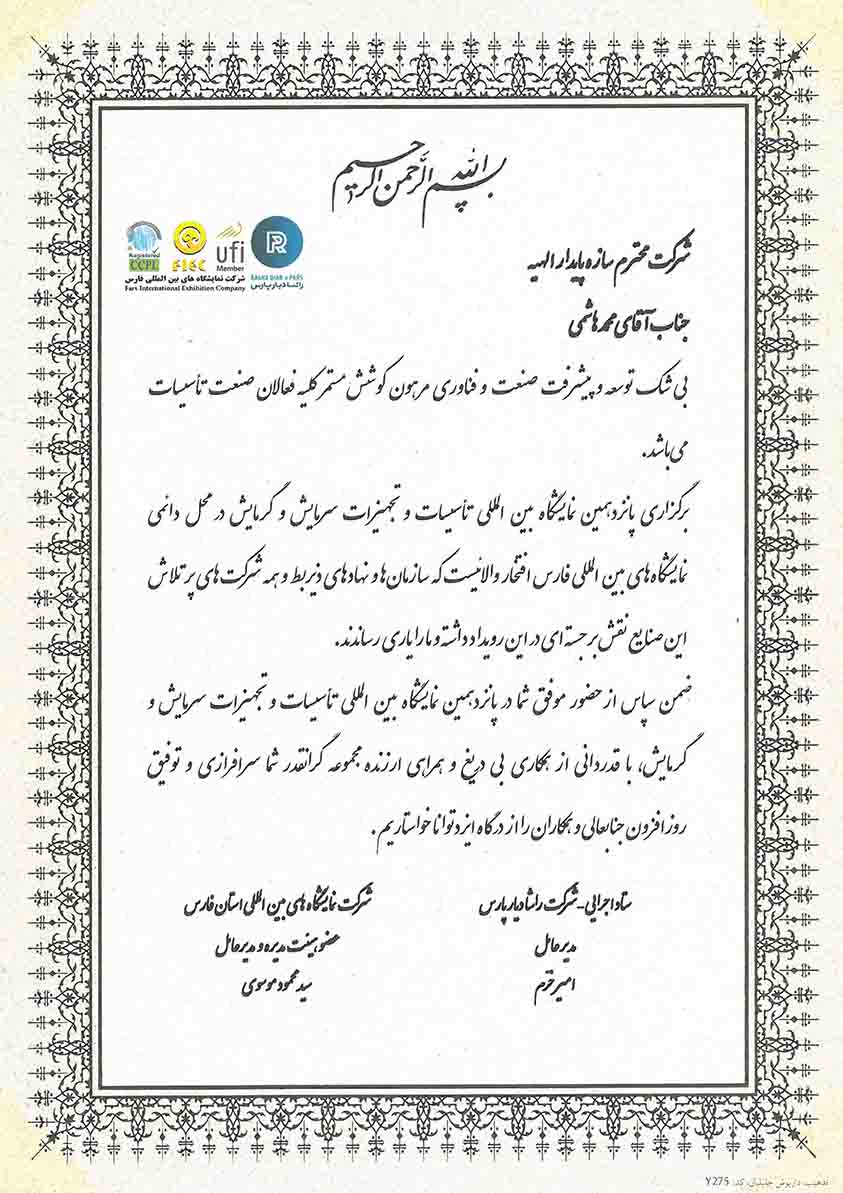 بسم الله الرحمن الرحیم
Registered
CCPL
FIEC
ufi
Member
شرکت نمایشگاه های بین المللی فارس
Fars International Exhibition Company
R
RASHA DIAR e PARS
راشا دیار پارس
شرکت محترم سازه پایدار الهیه
جناب آقای محمد هاشمی
بی شک توسعه و پیشرفت صنعت و فناوری مرهون کوشش مستمر کلیه فعالان صنعت تأسیسات
می باشد.
برگزاری پانزدهمین نمایشگاه بین المللی تأسیسات و تجهیزات سرمایش و گرمایش در محل دائمی
نمایشگاه های بین المللی فارس افتخار والائیست که سازمان ها و نهادهای ذیربط و همه شرکت های پر تلاش
این صنایع نقش برجسته ای در این رویداد داشته و ما را یاری رساندند.
ضمن سپاس از حضور موفق شما در پانزدهمین نمایشگاه بین المللی تأسیسات و تجهیزات سرمایش و
گرمایش، با قدردانی از همکاری بی دریغ و همراهی ارزنده مجموعه گرانقدر شما سرافرازی و توفیق
روز افزون جنابعالی و همکاران را از درگاه ایزد توانا خواستاریم.
ستاد اجرایی - شرکت راشا دیار پارس
مدیرعامل
امیر خرم
شرکت نمایشگاه های بین المللی استان فارس
عضو هیئت مدیره و مدیرعامل
سید محمود موسوی
تذهیب: داریوش جلیلیان، کد: Y275